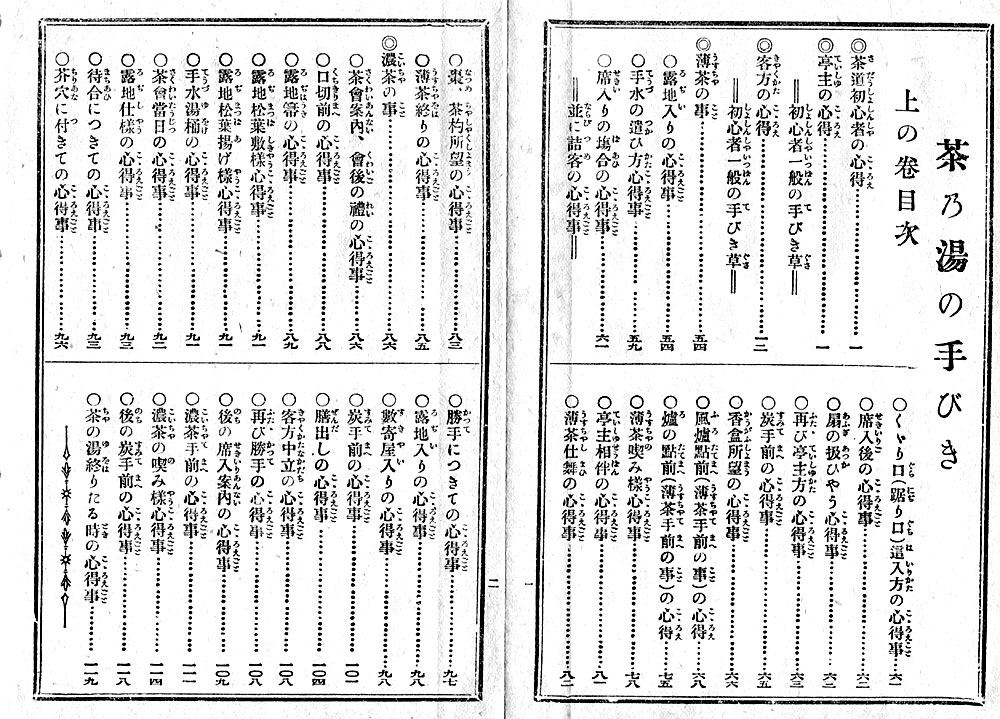 茶乃湯の手びき
上の卷目次
◎茶道初心者の心得………一
◎亭主の心得………一
＝初心者一般の手びき草＝
◎客方の心得………一二
＝初心者一般の手びき草＝
◎薄茶の事………五四
○露地入りの心得事………五四
○手水の遣ひ方心得事………五九
○席入りの塲合の心得事………六一
＝並に詰客の心得事＝
○くゞり口(踞り口)這入方の心得事………六一
○席入後の心得事………六二
○扇の扱ひやう心得事………六二
○再び亭主方の心得事………六三
○炭手前の心得事………六五
○香盒所望の心得事………六六
○風爐點前(薄茶手前の事)の心得………六八
○爐の點前(薄茶手前の事)の心得………七五
○薄茶喫み樣心得事………七八
○亭主相伴の心得事………八一
○薄茶仕舞の心得事………八二
一
○棗、茶杓所望の心得事………八三
○薄茶終りの心得事………八五
◎濃茶の事………八六
○茶會案內、會後の禮の心得事………八六
○口切前の心得事………八八
○露地箒の心得事………八九
○露地松葉敷樣心得事………九一
○露地松葉揚げ樣心得事………九一
○手水湯桶の心得事………九一
○茶會當日の心得事………九二
○露地仕樣の心得事………九三
○待合につきての心得事………九三
○芥穴に付きての心得事………九六
○勝手につきての心得事………九七
○露地入りの心得事………九八
○數寄屋入りの心得事………九八
○炭手前の心得事………一〇一
○膳出しの心得事………一〇四
○客方中立の心得事………一〇八
○再び勝手の心得事………一〇八
○後の席入案內の心得事………一〇九
○濃茶手前の心得事………一一一
○濃茶の喫み樣心得事………一一四
○後の炭手前の心得事………一一八
○茶の湯終りたる時の心得事………一一九
二